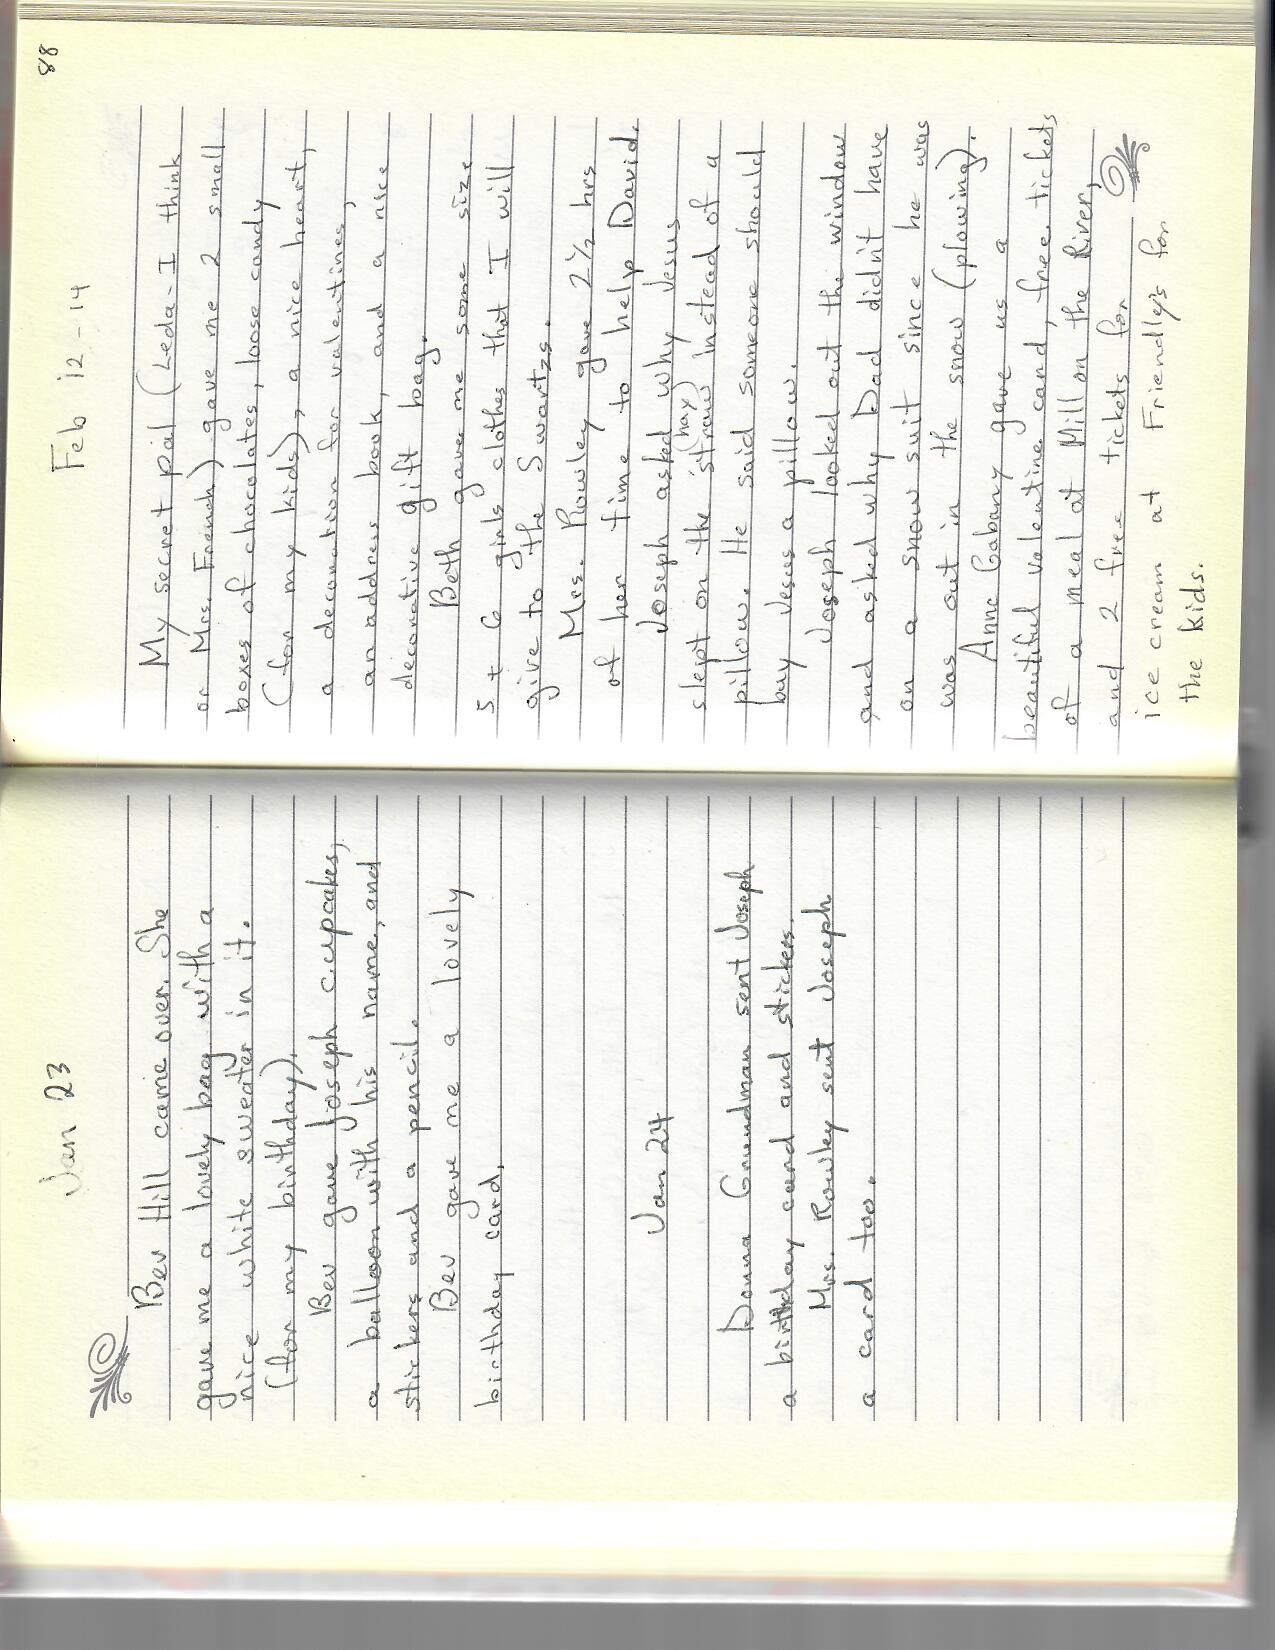 Jan 23
Bev Hill came over. She
gave me a lovely bag with a
nice white sweater in it.
(for my birthday).
Bev gave Joseph cupcakes,
a balloon with his name, and
stickers and a pencil.
Bev gave me a lovely
birthday card.
Jan 24
Donna Grundman sent Joseph
a birthday card and stickers.
Mrs. Rowley sent Joseph
a card too.
88
Feb 12-14
My secret pal (Leda-I think
or Mrs. French) gave me 2 small
boxes of chocolates, loose candy
(for my kids), a nice heart,
a decoration for valentines,
an address book, and a nice
decorative gift bag.
Beth gave me some size
5 + 6 girls clothes that I will
give to the Swartzs.
Mrs. Rowley gave 2½ hrs
of her time to help David.
Joseph asked why Jesus
slept on the straw (hay) instead of a
pillow. He said someone should
buy Jesus a pillow.
Joseph looked out the window
and asked why Dad didn't have
on a snow suit since he was
was out in the snow (plowing).
Anne Cabany gave us a
beautiful valentine card, free tickets
of a meal at Mill on the River,
and 2 free tickets for
ice cream at Friendly's for
the kids.